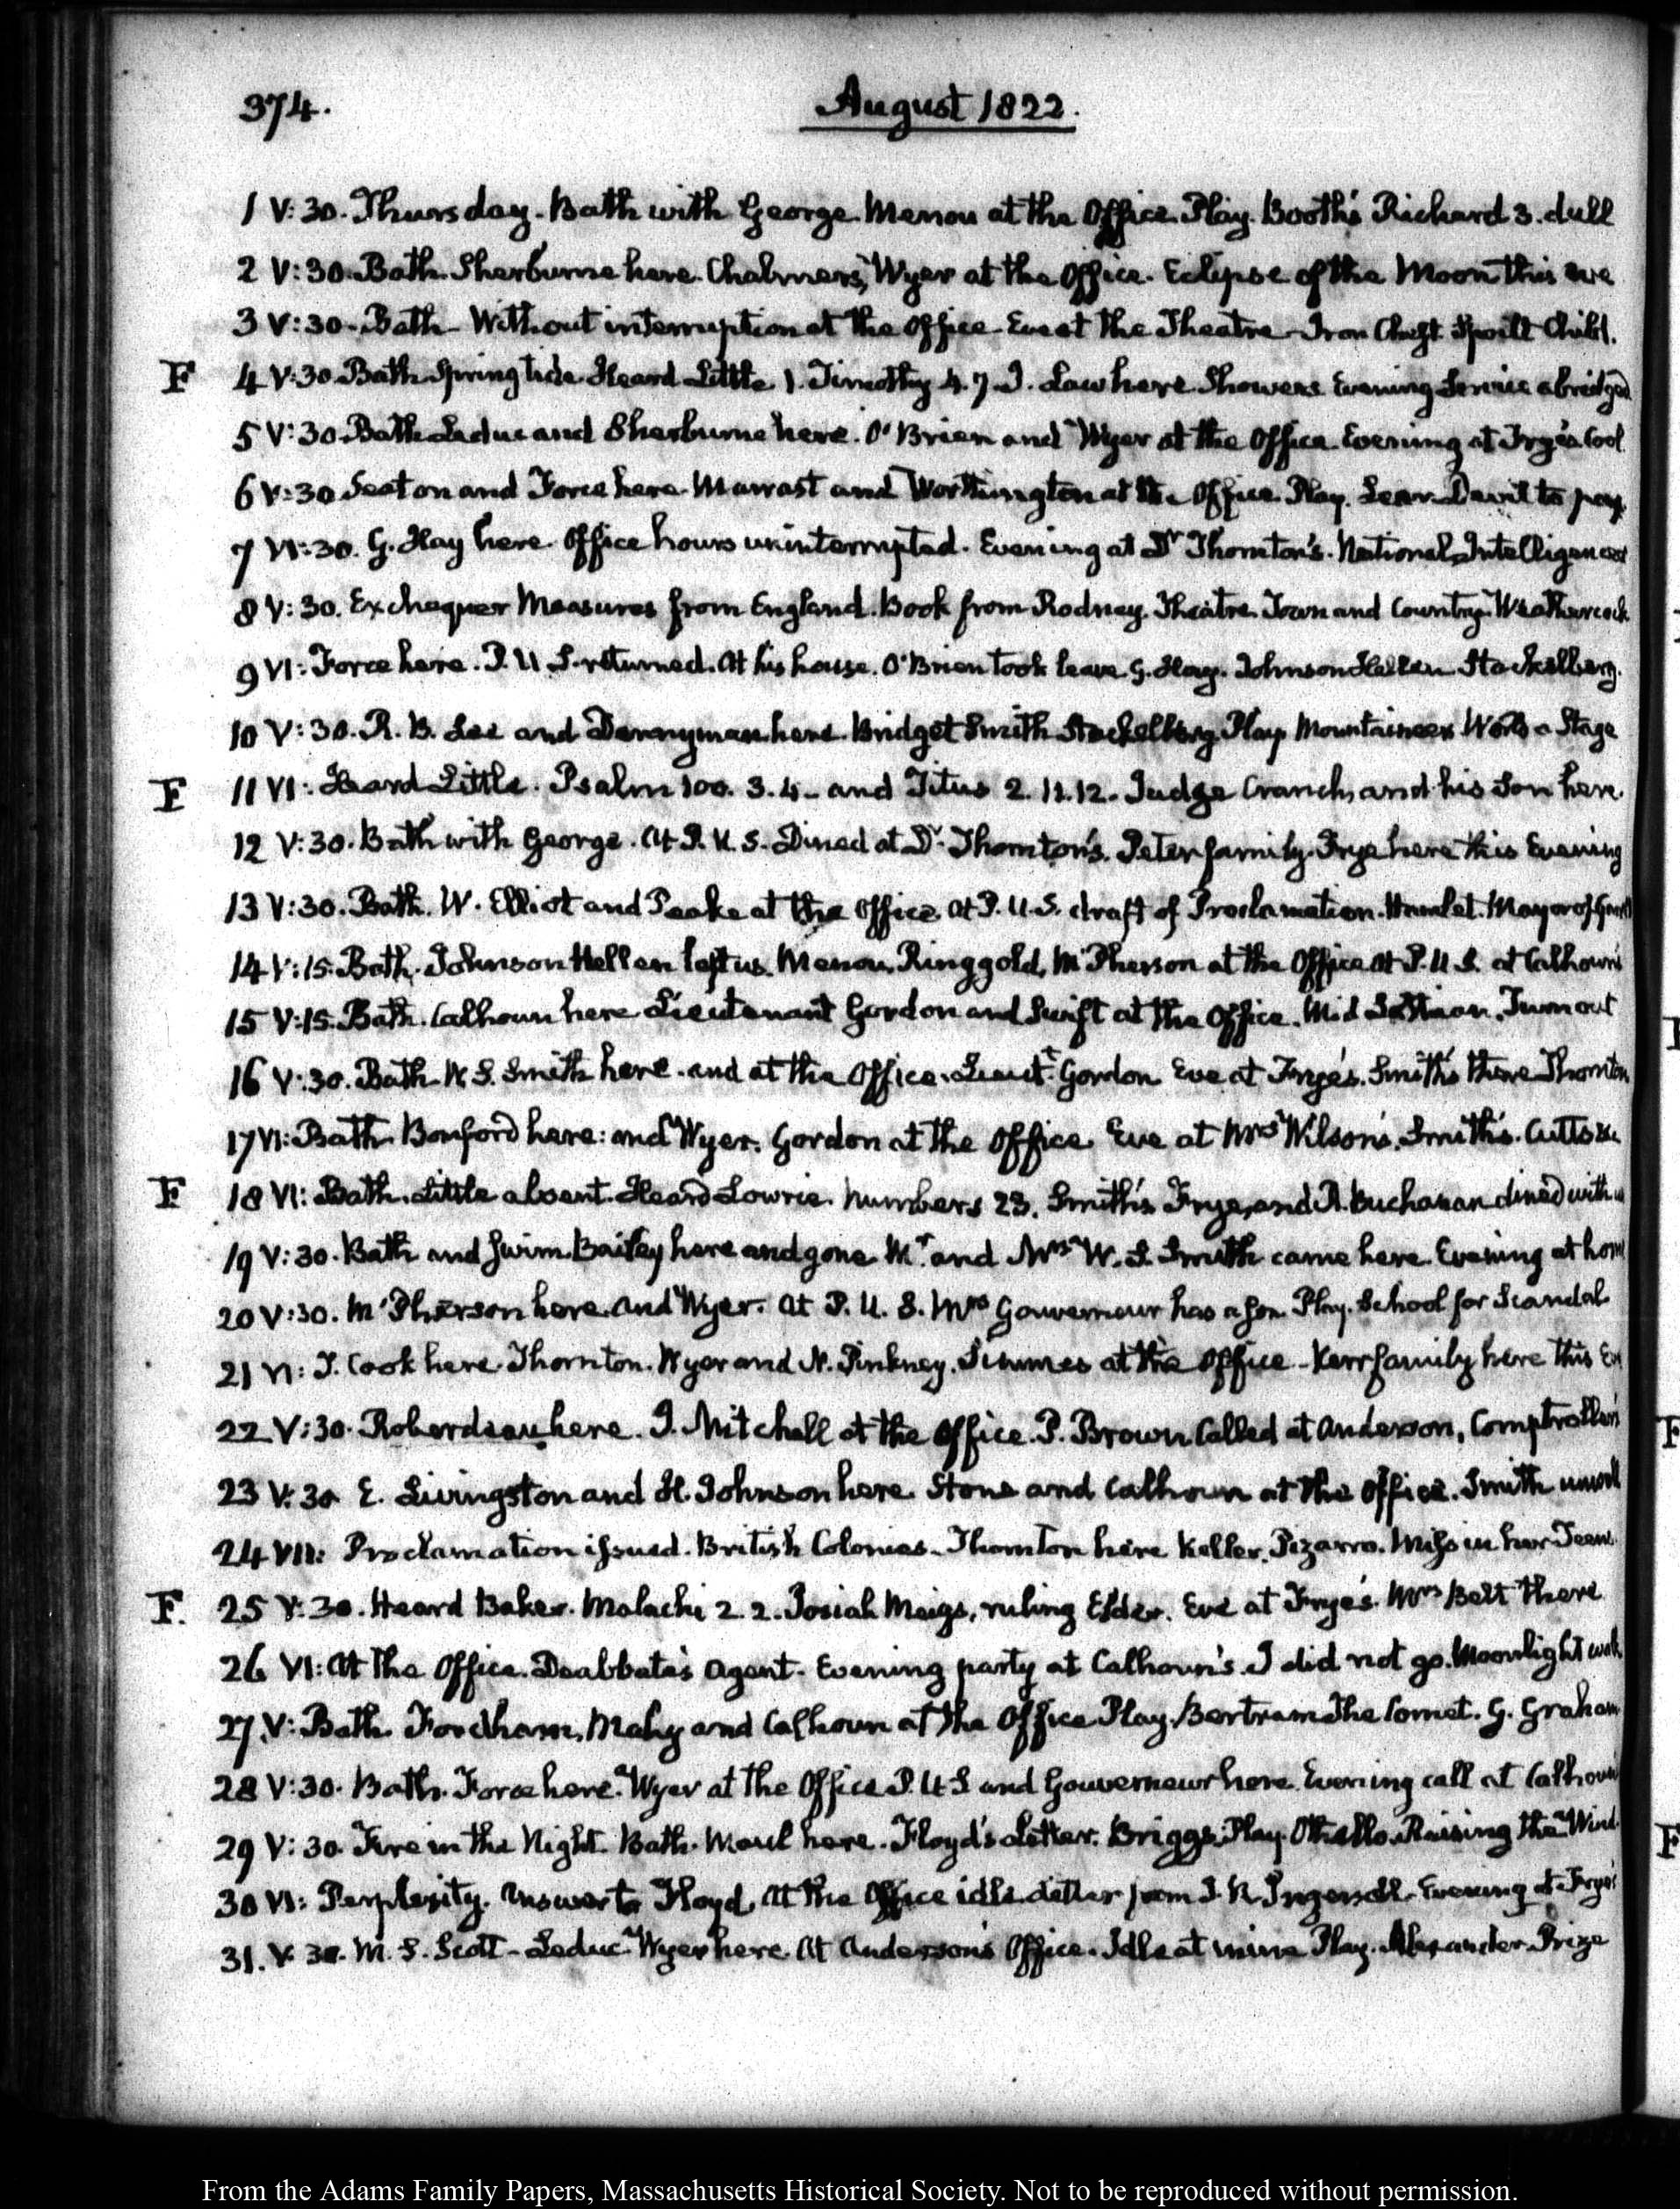 374.
August 1822.
1 V:30. Thursday. Bath with George. Menou at the Office. Play. Booth's Richard 3. dull
2 V:30. Bath. Sherburne here. Chalmers, Wyer at the Office. Eclipse of the Moon this eve
3 V:30. Bath. Without interruption at the Office. Eve at the Theatre. Iron Chest. Spoilt Child.
F 4 V:30. Bath Spring tide. Heard Little 1. Timothy 4. 7. T. Law here. Showers. Evening Service abridged
5 V:30. Bath. Leduc and Sherburne here. O'Brien and Wyer at the Office. Evening at Frye's. Cool
6 V:30. Seaton and Force here. Marrast and Worthington at the Office. Play. Lear. Devil to pay.
7 VI:30. G. Hay here. Office hours uninterrupted. Evening at Dr. Thornton's. National Intelligencer
8 V:30. Exchequer Measures from England. Book from Rodney. Theatre. Town and Country. Weathercock
9 VI: Force here. P. U S. returned. At his house. O'Brien took leave. G. Hay. Johnson Hellen Stackelberg.
10 V:30. R. B. Lee and here. Bridget Smith Stackelberg Play. Mountaineers World a Stage
F 11 VI: Heard Little. Psalm 100. 3. 4. and Titus 2. 11.12. Judge Cranch, and his Son here.
12 V:30. Bath with George. At P. U. S. Dined at Dr. Thornton's. Peter family. Frye here this Evening
13 V:30. Bath. W. Elliot and Peake at the Office. At P. U.S. draft of Proclamation. Hamlet. Mayor of
14 V:15. Bath. Johnson Hellen left us. Menou, Ringgold, McPherson at the Office at P. U S. at Calhoun's
15 V:15. Bath. Calhoun here Lieutenant Gordon and Swift at the Office. Mid Turn out
16 V:30. Bath W. S. Smith here. and at the Office. Lieutt. Gordon Eve at Frye's. Smith's there Thornton
17 VI: Bath. Bomford here: and Wyer. Gordon at the Office. Eve at Mrs Wilson's. Smith's. Cutts &c.
F 18 VI: Bath. Little absent. Heard Lowrie. Numbers 23. Smith's Frye, and R. Buchanan dined with us
19 V:30. Bath and Swim. Bailey here and gone. Mr. and Mrs W. S. Smith came here. Evening at home
20 V:30. McPherson here. and Wyer. At P. U. S. Mrs Gouverneur has a Son. Play. School for Scandal.
21 VI: T. Cook here. Thornton. Wyer and N. Pinkney. at the Office. Kerr family here this Eve
22 V:30. Roberdeau here. J. Mitchell at the Office. P. Brown Called at Anderson, Comptroller's
23 V:30 E. Livingston and H. Johnson here. Stone and Calhoun at the Office. Smith unwell
24 VII: Proclamation issued. British Colonies. Thornton here Keller. Pizarro. Miss in her Teens
F. 25 V:30. Heard Baker. Malachi 2. 2. Josiah Meigs, ruling Elder. Eve at Frye's. Mrs Belt there
26 VI: At the Office. Deabbate's Agent. Evening party at Calhoun's. I did not go. Moonlight walk
27. V: Bath. Fordham, Mahy and Calhoun at the Office Play. Bertram The Comet. G. Graham
28 V:30. Bath. Force here. Wyer at the Office. P. U S and Gouverneur here. Evening call at Calhoun's
29 V:30. Fire in the Night. Bath. Maul here. Floyd's Letter. Briggs. Play. Othello. Raising the Wind
30 VI: Perplexity. Answer to Floyd. At the Office idle. Letter from Ingersoll. Evening at Frye's
31. V:30. M. S. Scott. Leduc. Wyer here. At Anderson's Office. Idle at mine Play. Alexander. Prize
From the Adams Family Papers, Massachusetts Historical Society. Not to be reproduced without permission.